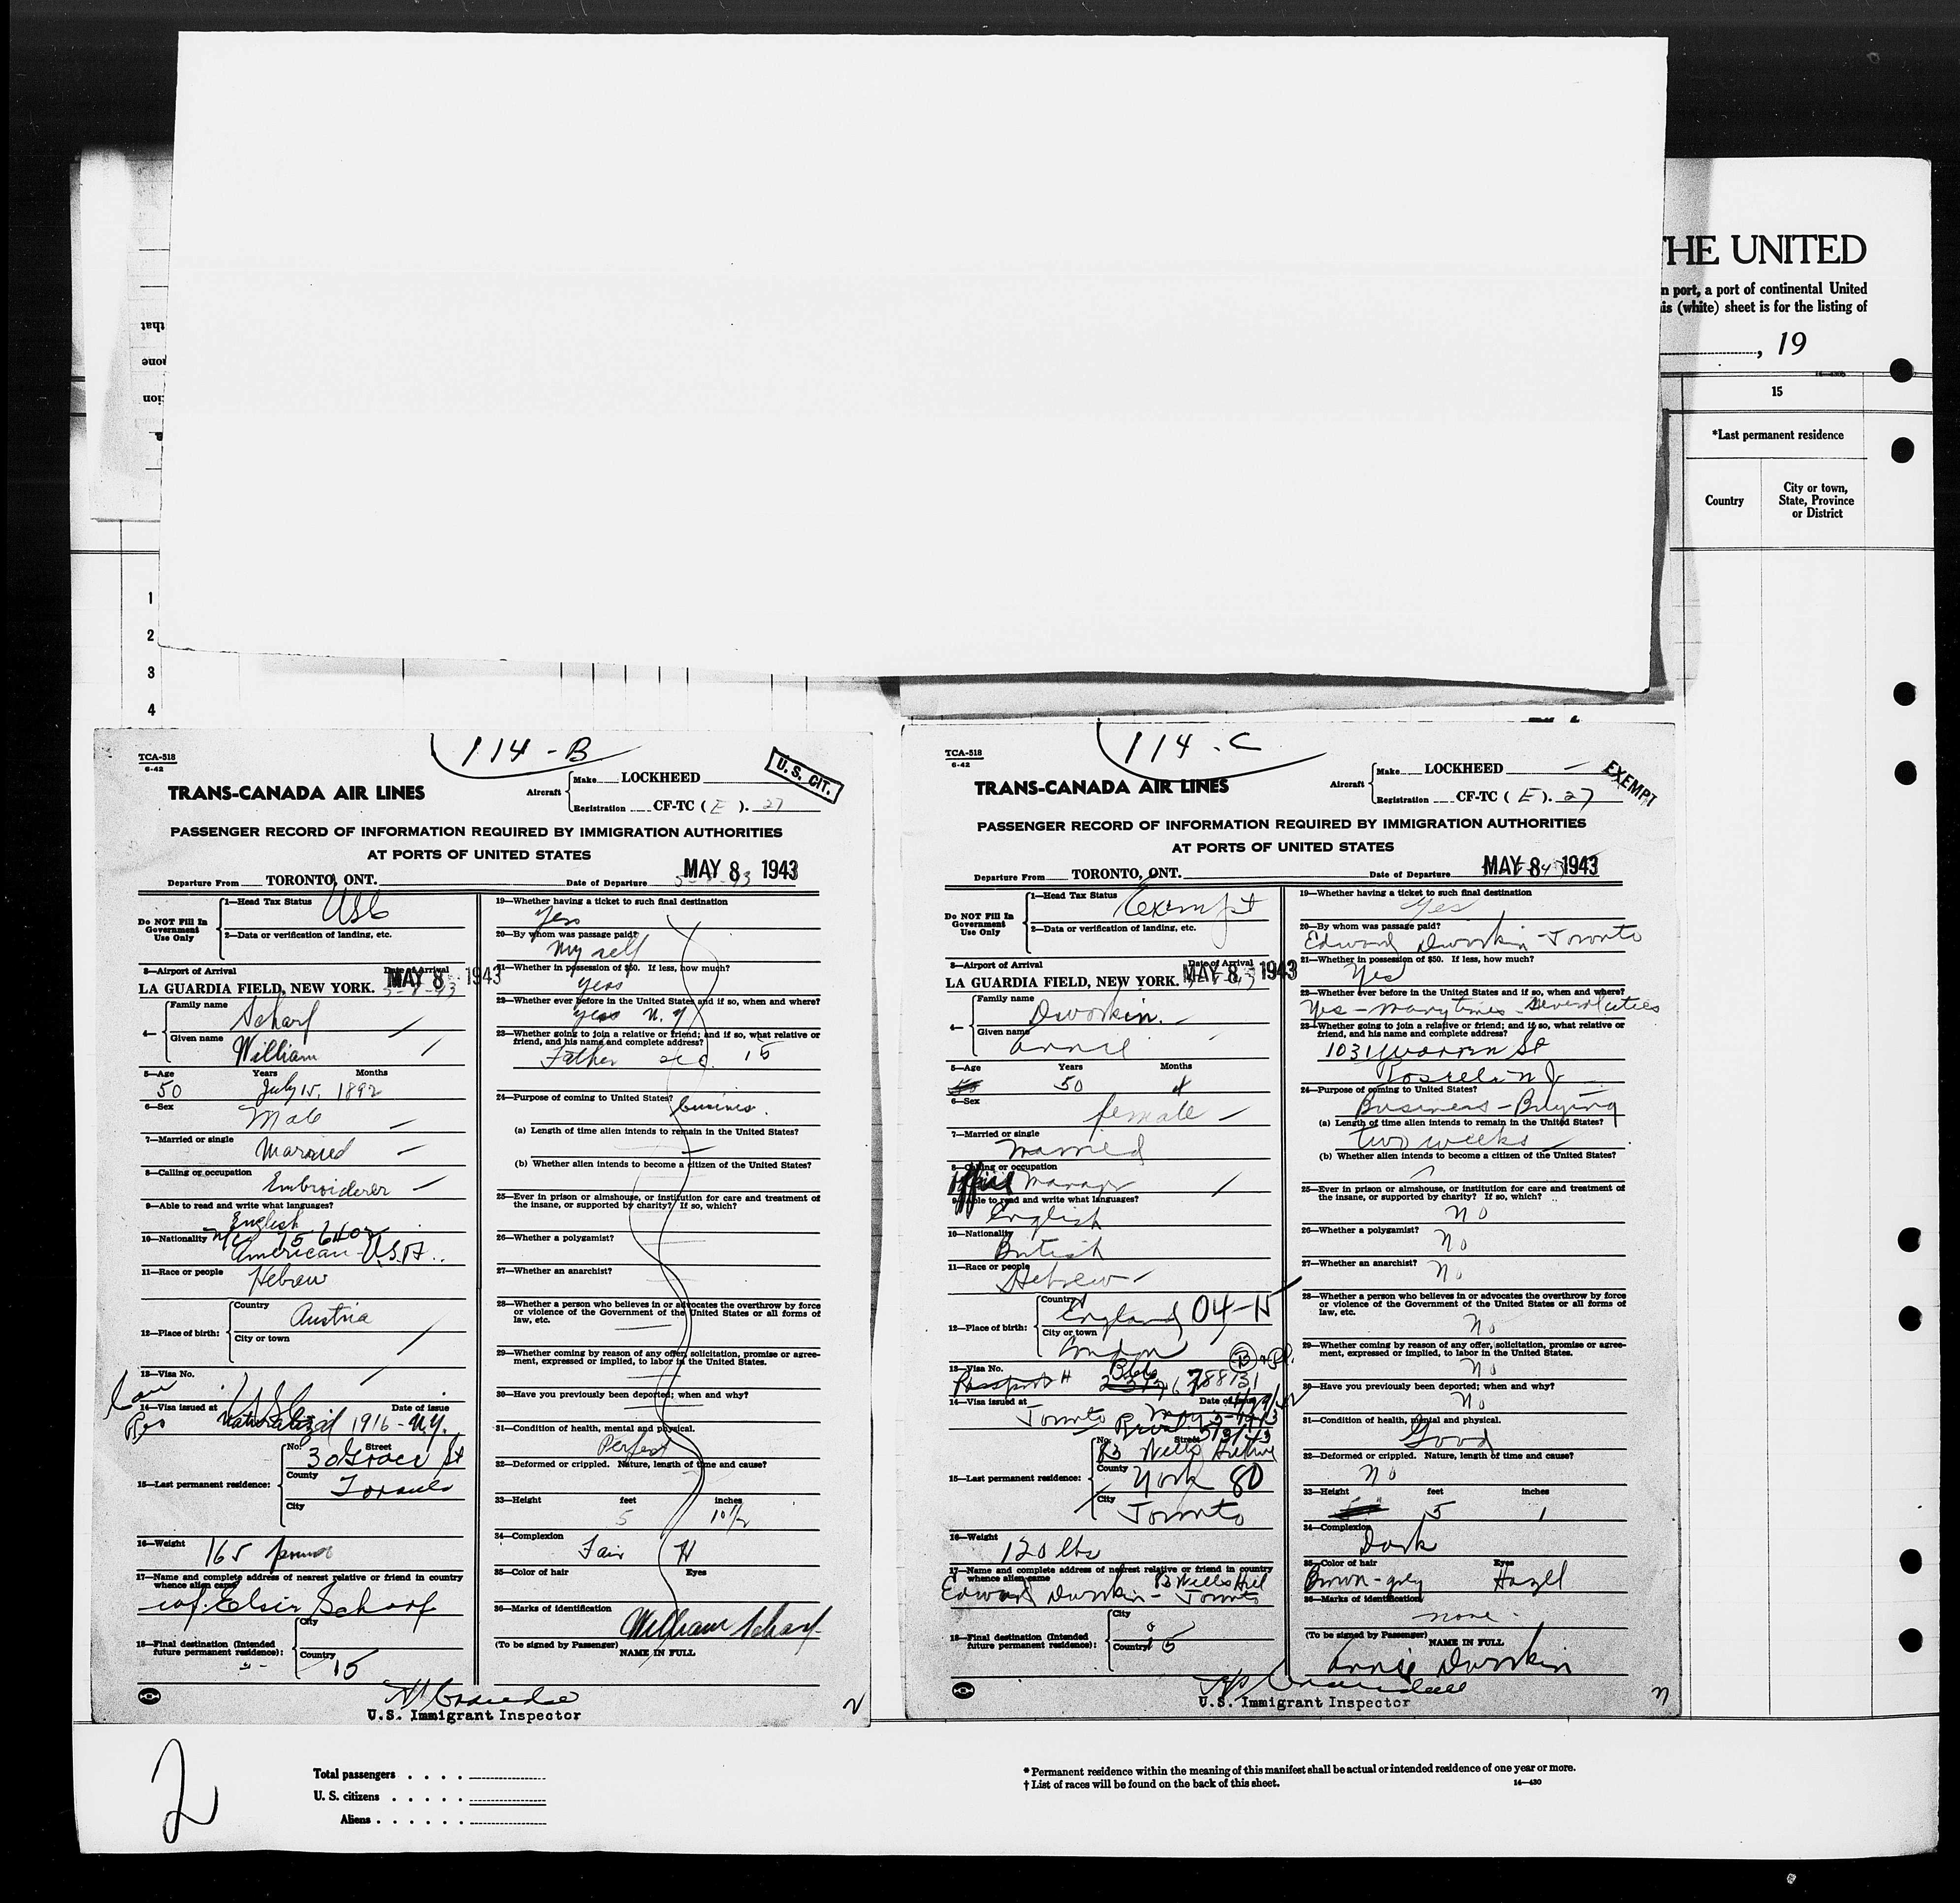 THE UNITED
n port, a port of continental United
is (white) sheet is for the listing of
, 19
15
*Last permanent residence
Country
City or town,
State, Province
or District
that
tion
1
2
3
4
114-B
TCA-518
6-42
TRANS-CANADA AIR LINES
Aircraft
Make LOCKHEED
Registration CF-TC ( E ). 27
U.S. CIT.
PASSENGER RECORD OF INFORMATION REQUIRED BY IMMIGRATION AUTHORITIES
AT PORTS OF UNITED STATES
Departure From TORONTO, ONT. Date of Departure MAY 8 1943
Do NOT Fill In
Government
Use Only
1—Head Tax Status USC
2—Data or verification of landing, etc.
3—Airport of Arrival Date of Arrival
LA GUARDIA FIELD, NEW YORK. MAY 8 1943
4—
Family name
Scharf
Given name
William
5—Age Years Months
50 July 15, 1892
6—Sex
Male
7—Married or single
Married
8—Calling or occupation
Embroiderer
9—Able to read and write what languages?
English
10—Nationality
American U.S.A.
11—Race or people
Hebrew
12—Place of birth:
Country
Austria
City or town
13—Visa No.
14—Visa issued at Date of issue
Naturalized 1916 - N.Y.
15—Last permanent residence:
No. Street
30 Grace St
County
Toronto
City
16—Weight
165 pounds
17—Name and complete address of nearest relative or friend in country
whence alien came
Elsie Scharf
18—Final destination (Intended
future permanent residence):
City
Country
15
19—Whether having a ticket to such final destination
Yes
20—By whom was passage paid?
My self
21—Whether in possession of $50. If less, how much?
yess
22—Whether ever before in the United States and if so, when and where?
yess N.Y
23—Whether going to join a relative or friend; and if so, what relative or
friend, and his name and complete address?
Father sec. 15
24—Purpose of coming to United States?
business.
(a) Length of time alien intends to remain in the United States?
(b) Whether alien intends to become a citizen of the United States?
25—Ever in prison or almshouse, or institution for care and treatment of
the insane, or supported by charity? If so, which?
26—Whether a polygamist?
27—Whether an anarchist?
28—Whether a person who believes in or advocates the overthrow by force
or violence of the Government of the United States or all forms of
law, etc.
29—Whether coming by reason of any offer, solicitation, promise or agree-
ment, expressed or implied, to labor in the United States.
30—Have you previously been deported; when and why?
31—Condition of health, mental and physical.
Perfect
32—Deformed or crippled. Nature, length of time and cause?
33—Height feet inches
5 10 1/2
34—Complexion
Fair H
35—Color of hair Eyes
36—Marks of identification
William Scharf
(To be signed by Passenger)
NAME IN FULL
U.S. Immigrant Inspector
114-C
TCA-518
6-42
TRANS-CANADA AIR LINES
Aircraft
Make LOCKHEED
Registration CF-TC ( E ). 27
EXEMPT
PASSENGER RECORD OF INFORMATION REQUIRED BY IMMIGRATION AUTHORITIES
AT PORTS OF UNITED STATES
Departure From TORONTO, ONT. Date of Departure MAY 8 1943
Do NOT Fill In
Government
Use Only
1—Head Tax Status Exempt
2—Data or verification of landing, etc.
3—Airport of Arrival Date of Arrival
LA GUARDIA FIELD, NEW YORK. MAY 8 1943
4—
Family name
Dworkin.
Given name
Annie
5—Age Years Months
50
6—Sex
female
7—Married or single
Married
8—Calling or occupation
Manager
9—Able to read and write what languages?
English
10—Nationality
British
11—Race or people
Hebrew
12—Place of birth:
Country
England 04-N
City or town
London
13—Visa No.
Passport #
14—Visa issued at Date of issue
Toronto
15—Last permanent residence:
No. Street
83 Wells Hill Ave
County
York 80
City
Toronto
16—Weight
120 lbs
17—Name and complete address of nearest relative or friend in country
whence alien came
83 Wells Hill
Edward Dworkin - Toronto
18—Final destination (Intended
future permanent residence):
City
Country 15
19—Whether having a ticket to such final destination
Yes
20—By whom was passage paid?
Edward Dworkin - Toronto
21—Whether in possession of $50. If less, how much?
Yes
22—Whether ever before in the United States and if so, when and where?
Yes - many times - several cities
23—Whether going to join a relative or friend; and if so, what relative or
friend, and his name and complete address?
1031 Warren St
Roselle N J
24—Purpose of coming to United States?
Business - Buying
(a) Length of time alien intends to remain in the United States?
two weeks
(b) Whether alien intends to become a citizen of the United States?
25—Ever in prison or almshouse, or institution for care and treatment of
the insane, or supported by charity? If so, which?
no
26—Whether a polygamist?
no
27—Whether an anarchist?
no
28—Whether a person who believes in or advocates the overthrow by force
or violence of the Government of the United States or all forms of
law, etc.
no
29—Whether coming by reason of any offer, solicitation, promise or agree-
ment, expressed or implied, to labor in the United States.
no
30—Have you previously been deported; when and why?
no
31—Condition of health, mental and physical.
Good
32—Deformed or crippled. Nature, length of time and cause?
no
33—Height feet inches
5 1
34—Complexion
Dark
35—Color of hair Eyes
Brown-grey Hazel
36—Marks of identification
none.
(To be signed by Passenger)
NAME IN FULL
Annie Dworkin
U.S. Immigrant Inspector
2
Total passengers
U. S. citizens
Aliens
* Permanent residence within the meaning of this manifest shall be actual or intended residence of one year or more.
† List of races will be found on the back of this sheet.
14—430